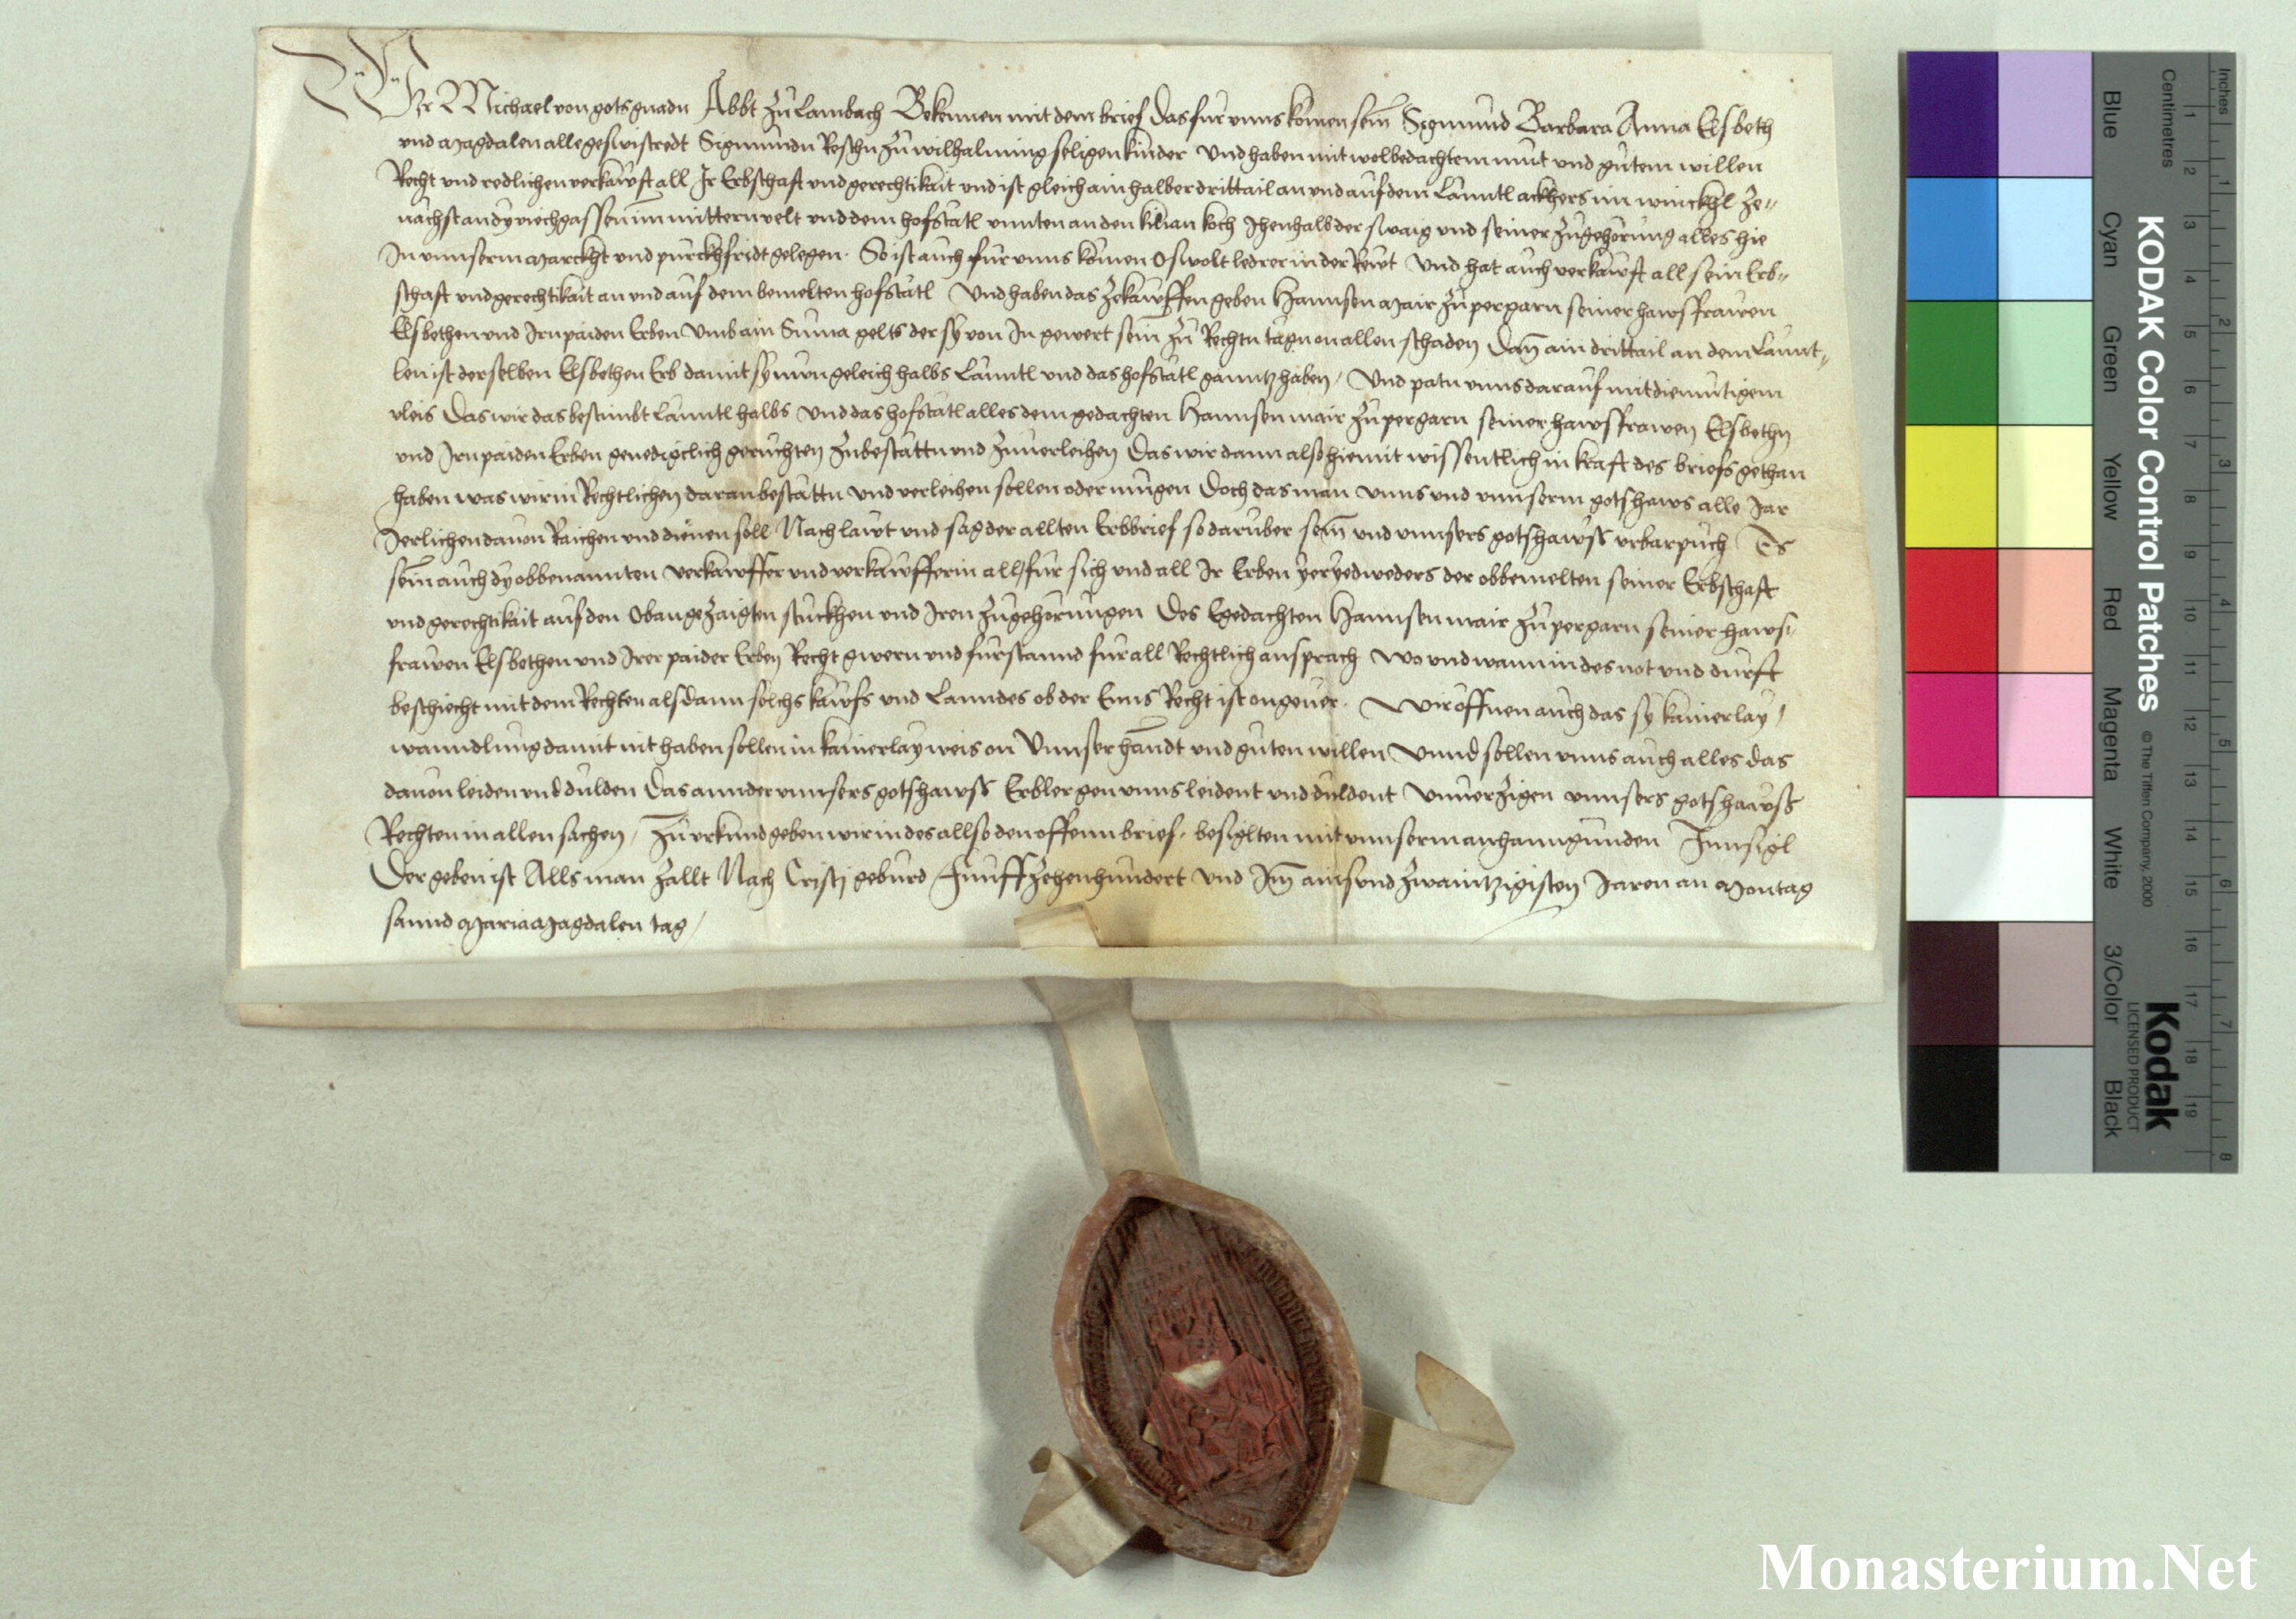 Wir Michael von gots gnadn Abbt zu Lambach Bekennen mit dem brief Das fur unns komen sein Sigmund Barbara Anna Elsbeth
und Magdalen alle geswistredt Sigmundn Reschn zu wilhalming seligen kinder Und haben mit wolbedachtem mut und gutem willen
Recht und redlichen verkawft all Ir Erbschaft und gerechtikait und ist gleich ain halber drittail an und auf dem Lanntl ackhers im winckhl ze=
nachst an dy viechgassen im mittern velt und dem hofstatl unnten an den kilian koch Ihenhalb der swaig und seiner zugehorung alles hie
In unnserm Marckht und purckhfridt gelegen. So ist auch fur unns komen Oswolt ledrer in der Rewt Und hat auch verkawft all sein Erb=
schaft und gerechtikait an und auf dem bemelten hofstatl Und haben das zekawffen geben Hannsen Mair zu pergarn seiner hawsfrawen
Elsbethen und Irn paiden Erben Umb ain Suma gelts der sy von In gewert sein zu Rechtn tagn on allen schaden Dan ain drittail an dem Lannt=
len ist derselben Elsbethen Erb damit sy nun geleich halbs Lanntl und das hofstatl ganntz haben / Und patn unns darauf mit diemutigem
vleis Das wir das bestimbt Lanntl halbs und das hofstatl alles dem gedachten Hannsen mair zu pergarn seiner hawsfrawen Elsbethn
und Irn paiden Erben genedigclich geruchten zubestattn und zuuerleihen Das wir dann also hiemit wissentlich in kraft des briefs gethan
haben was wir in Rechtlichen daran bestattn und verleihen sollen oder mugen Doch das man unns und unnserm gotshaws alle Jar
Jerlichen dauon Raichen und dienen soll Nach lawt und sag der allten Erbbrief so daruber sein und unnsers gotshawss urbarpuch Es
sein auch dy obbenannten verkawffer und verkawfferin all fur sich und all Ir Erben yeryedweders der obbemelten seiner Erbschaft
und gerechtikait auf den Obangezaigten stuckhen und Iren zugehorungen Des Egedachten Hannsen mair zu pergarn seiner haws=
frawen Elsbethen und Irer paider Erben Recht gwern und furstannd fur all Rechtlich ansprach wo und wann in des not und durft
beschiecht mit dem Rechten als dann solchs kawfs und Lanndes ob der Enns Recht ist ongeuer. Wir offnen auch das sy kainerlay /
wanndlung damit nit haben sollen in kainerlay weis on Unnser handt und guten willen Unnd sollen unns auch alles das
dauon leiden und dulden Das annder unnsers gotshawss Erbler gen unns leident und duldent Unuerzigen unnsers gotshawss
Rechten in allen sachen / Zu urkund geben wir in des allso den offenn brief. besiglten mit unnserm anhanngunden Innsigl
Der geben ist Alls man zallt Nach Cristj geburd Funffzehenhundert Und Im ainsundzwaintzigisten Jaren an Montag
sannd Maria Magdalen tag /
KODAK Color Control Patches
© The Tiffen Company, 2000
Kodak
LICENSED PRODUCT
Blue
Cyan
Green
Yellow
Red
Magenta
White
3/Color
Black
Centimetres
1 2 3 4 5 6 7 8 9 10 11 12 13 14 15 16 17 18 19
Inches
1 2 3 4 5 6 7 8
Monasterium.Net